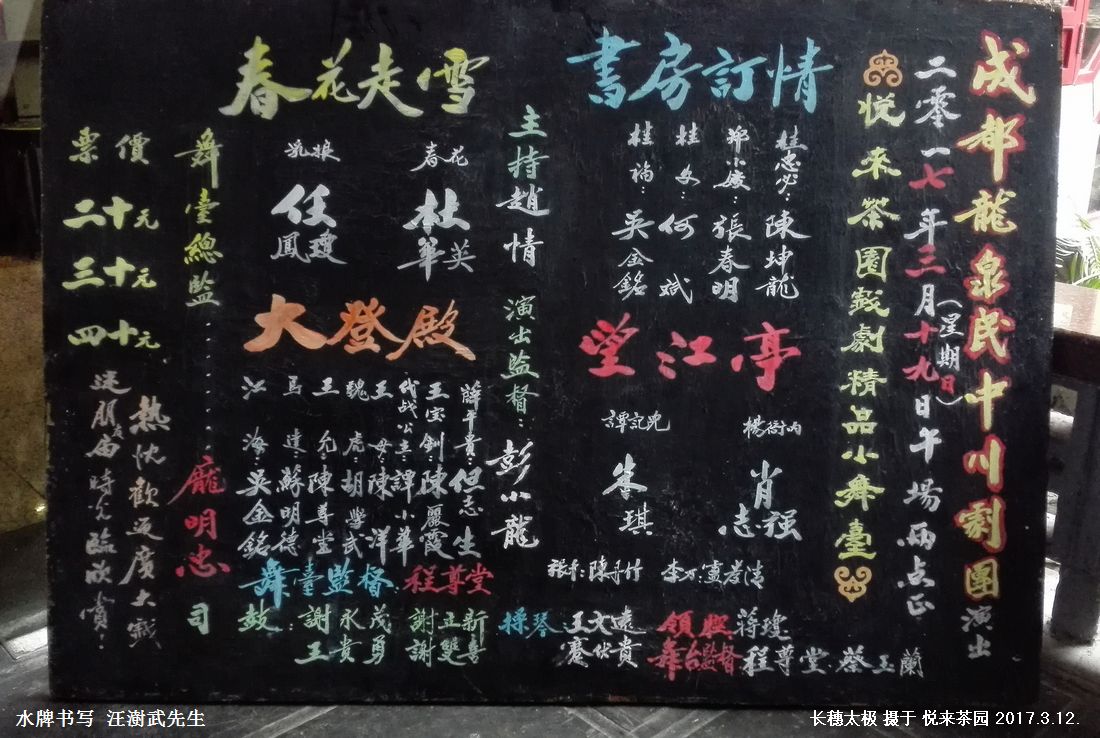 成都龍泉民中川劇團演出
二零一七年三月十九日午場兩点正
(星期日)
悦来茶園戏劇精品小舞臺
書房訂情
桂忠必:陳坤龍
鄭小姣:張春明
桂文:何斌
桂禍:吴金銘
望江亭
楊衙内 肖志强
譚記児 朱琪
李万:
張千:陳
主持趙情 演出監督:彭小龍
春花走雪
春花 杜華英
乳娘 任鳳瓊
大登殿
薛平贵:但志生
王宝釧陳麗霞
代战公主譚小華
王母陳洋
魏虎:胡學武
王允陳尊堂
馬達蘇明德
江海吴金銘
舞臺監督:程尊堂
舞臺總監 龐明忠
票價
二十元
三十元
四十元
熱忱歡迎廣大戲
迷朋友届時光臨欣賞:
司鼓:謝永茂 謝正新
王贵勇 謝雙喜
操琴:王文遠
蹇代貴
領腔 蒋瓊
舞台監督程尊堂·蔡玉蘭
水牌书写 汪澍武先生
长穗太极 摄于 悦来茶园 2017.3.12.